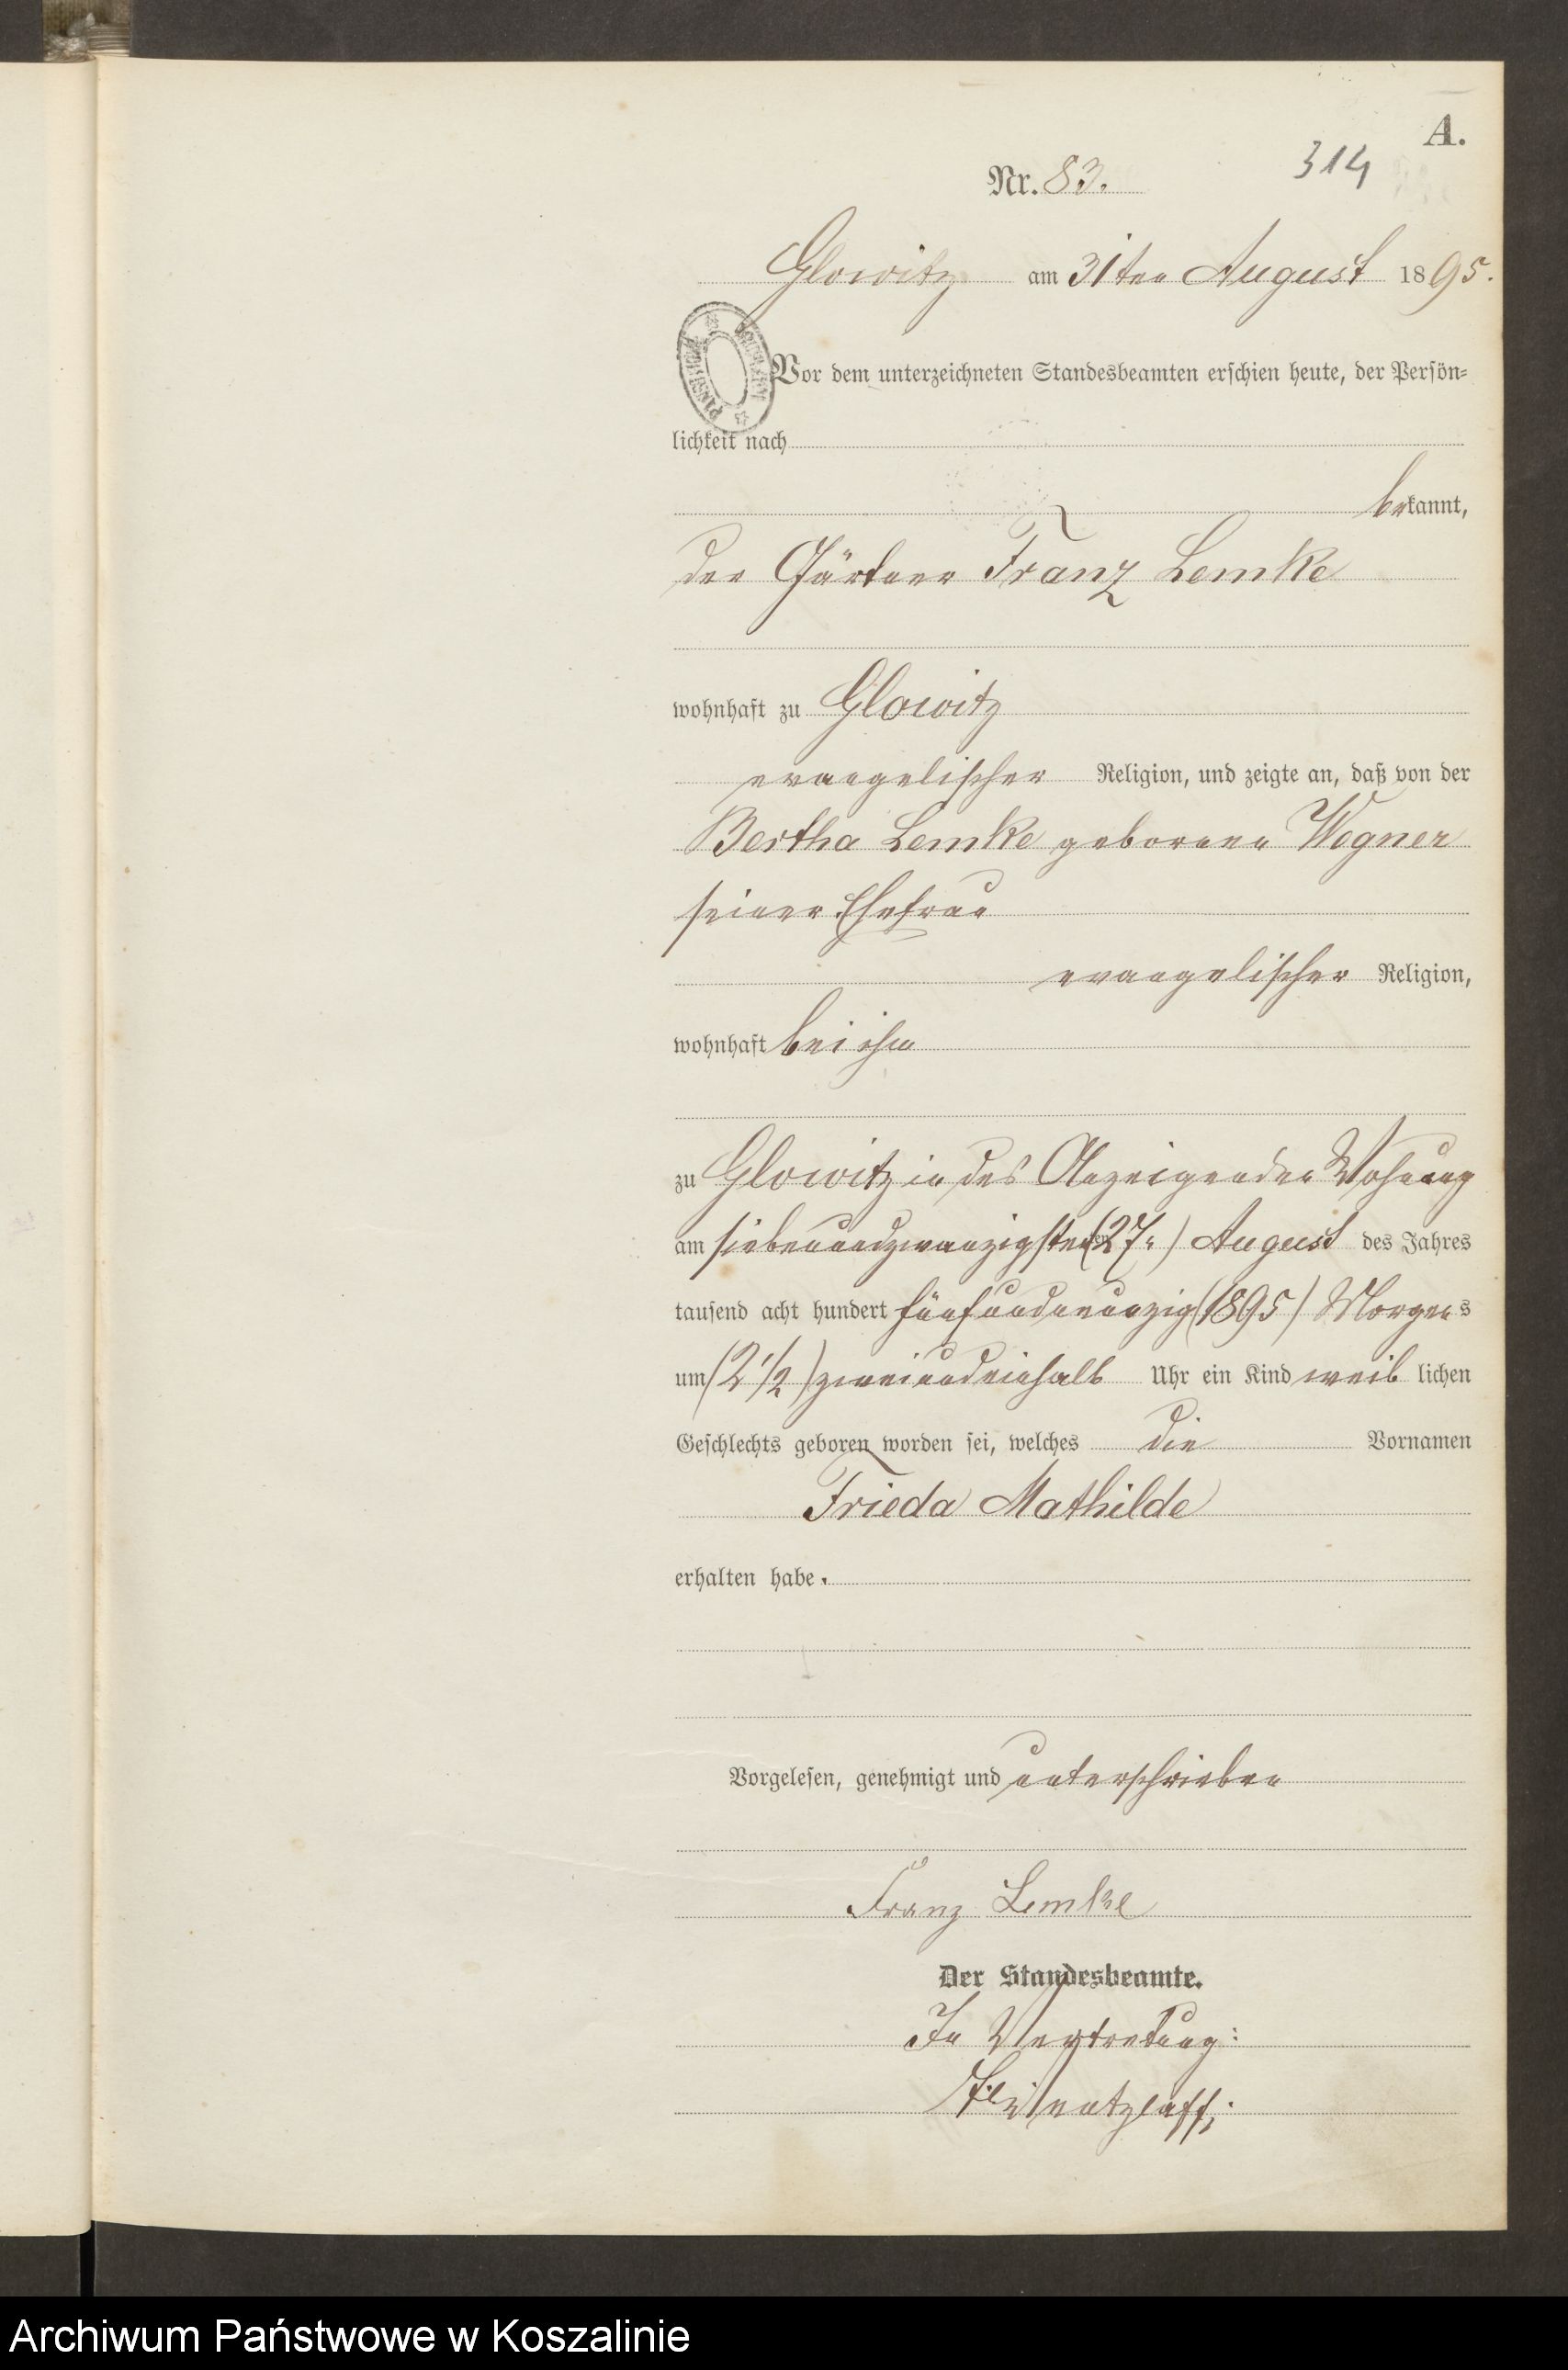 A.
314
Nr. 83.
Glowitz am 31ten August 1895.
Vor dem unterzeichneten Standesbeamten erschien heute, der Persön-
lichkeit nach
bekannt,
der Gärtner Franz Lemke
wohnhaft zu Glowitz
evangelischer Religion, und zeigte an, daß von der
Bertha Lemke geborenen Wegner
seiner Ehefrau
evangelischer Religion,
wohnhaft bei ihm
zu Glowitz in des Anzeigenden Wohnung
am siebenundzwanzigsten (27.) August des Jahres
tausend acht hundert fünfundneunzig (1895) Morgens
um (2 1/2) zweiundeinhalb Uhr ein Kind weiblichen
Geschlechts geboren worden sei, welches die Vornamen
Frieda Mathilde
erhalten habe.
Vorgelesen, genehmigt und unterschrieben
Franz Lemke
Der Standesbeamte.
In Vertretung:
Archiwum Państwowe w Koszalinie